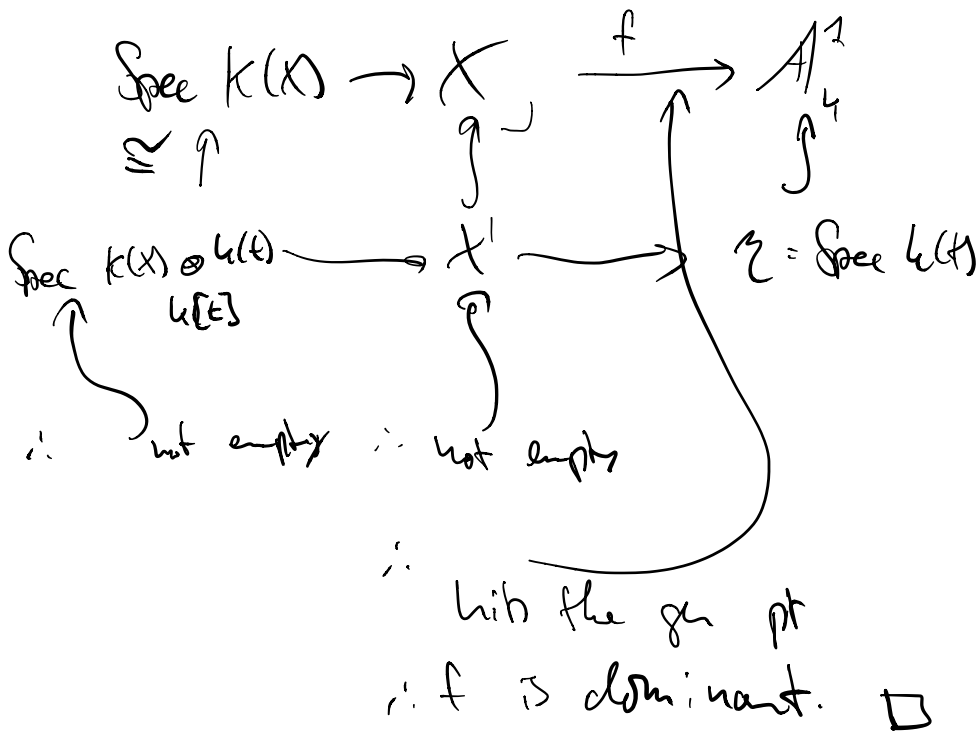 Spec K(X) → X f → A¹_k
≅ ↑
Spec K(X) ⊗ k(t) → X' → η = Spec k(t)
k[t]
∴ not empty ∴ not empty
∴
hits the gen pt
∴ f is dominant. □